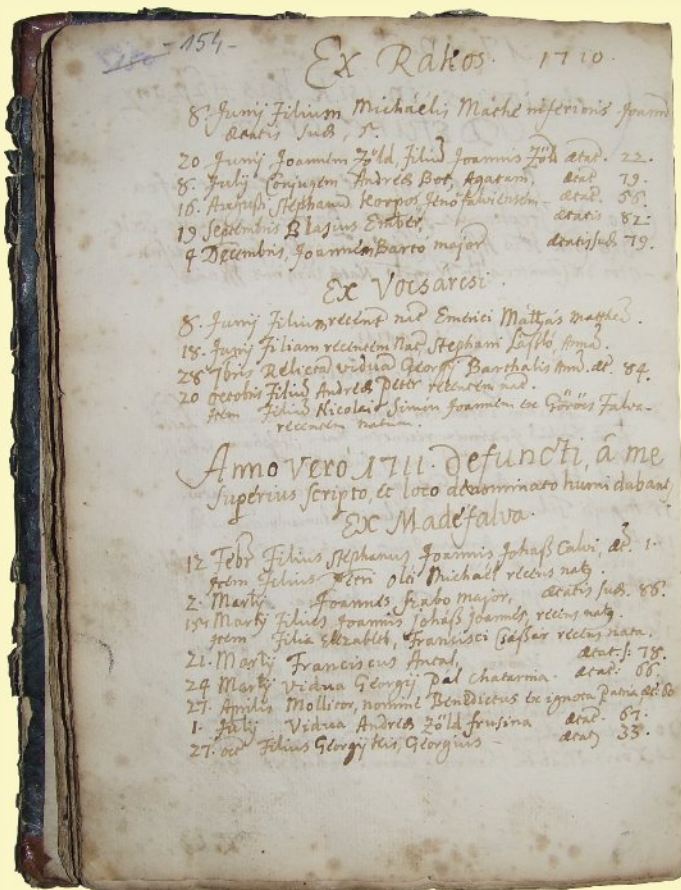 150 - 154 -
Ex Rakos. 1710.
8. Junij Filium Michaelis Mathe inferioris Joann
ætatis suæ, 5.
20 Junij Joannem Zöld, Filiū Joannis Zöld ætat. 22.
8. Julij Conjugem Andreæ Bot, Agatam, ætat 79.
16. Augusti Stephanū Korpos Jenőfalviensem - ætat. 56.
19 Septembris Blasius Ember, ætatis 82.
4 Decembris, Joannem Barto major ætatis suæ 79.
Ex Vocsarcsi.
8. Junij Filium recent nat Emerici Mattyás Matthe
18. Junij Filiam recentem Nat, Stephani László, Annā.
28 7bris Relictā viduā Georgij Barthalis Annā. æt. 84.
20 octobris Filiū Andreæ Peter recentem nat.
Item Filiū Nicolai Simon Joannem ex Göröcs Falva
recentem natum.
Anno Vero 1711. defuncti, â me
superius scripto, et loco denominato humi dabant
Ex Madéfalva.
12 Febr Filius Stephanus Joannis Johasz Calvi, æt. 1.
Item Filius Petri Michaël recens nat.
2. Martÿ Joannes Szabo major, ætatis suæ. 86.
Martÿ Filius Joannis Johasz Joannes, recens nat.
Item Filia Elizabeth, Francisci Császár recens nata.
21. Martÿ Franciscus Antal, ætat. s: 78.
24 Martÿ Vidua Georgij Pál Chatarina. ætat: 66.
27. Aprilis Mollitor, nomine Benedictus ex ignota Patria æt. 60
1. Julÿ Vidua Andreæ Zöld frusina ætat. 67.
27. oct Filius Georgÿ Georgius - ætat 33.